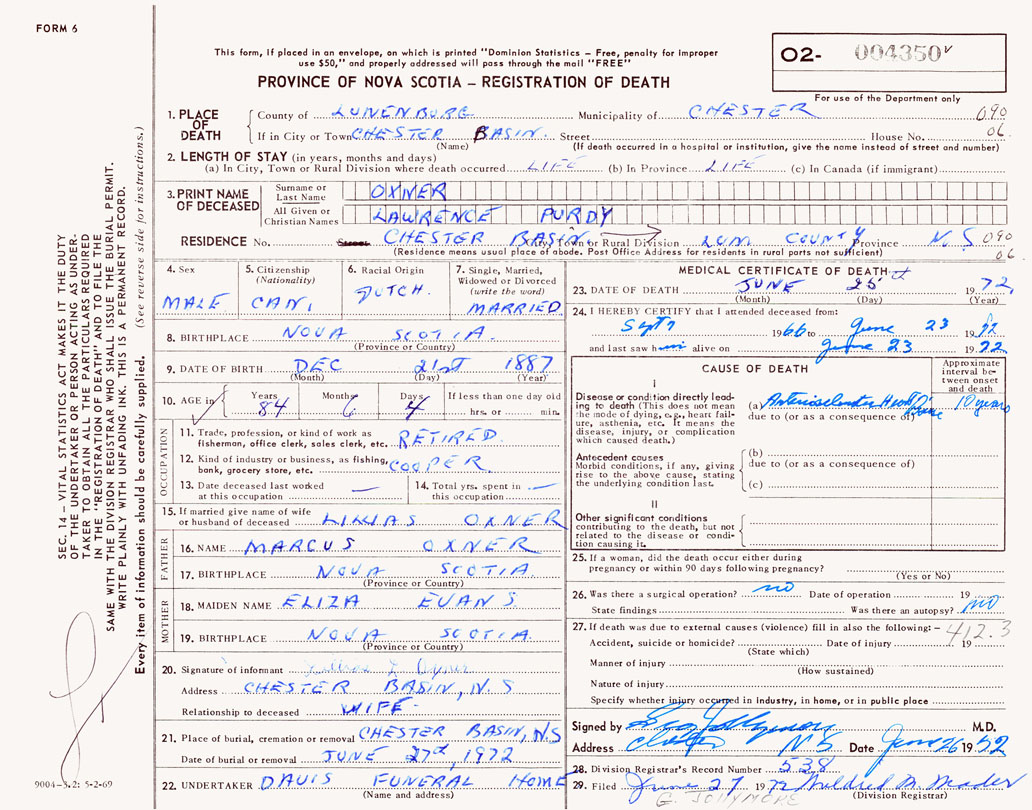 FORM 6
This form, if placed in an envelope, on which is printed "Dominion Statistics – Free, penalty for improper
use $50," and properly addressed will pass through the mail "FREE"
PROVINCE OF NOVA SCOTIA – REGISTRATION OF DEATH
O2- 004350
For use of the Department only
1. PLACE OF DEATH
County of LUNENBURG Municipality of CHESTER 090
If in City or Town CHESTER BASIN. Street House No. 06
(Name) (If death occurred in a hospital or institution, give the name instead of street and number)
2. LENGTH OF STAY (in years, months and days)
(a) In City, Town or Rural Division where death occurred LIFE (b) In Province LIFE (c) In Canada (if immigrant)
3. PRINT NAME OF DECEASED
Surname or Last Name OXNER
All Given or Christian Names LAWRENCE PURDY
RESIDENCE No. Street CHESTER BASIN City, Town or Rural Division LUN COUNTY Province N.S 090
(Residence means usual place of abode. Post Office Address for residents in rural parts not sufficient) 06
4. Sex
MALE
5. Citizenship
(Nationality)
CAN.
6. Racial Origin
DUTCH.
7. Single, Married,
Widowed or Divorced
(write the word)
MARRIED
8. BIRTHPLACE NOVA SCOTIA.
(Province or Country)
9. DATE OF BIRTH DEC 21st 1887
(Month) (Day) (Year)
10. AGE in
Years 84
Months 6
Days 4
If less than one day
hrs. or min.
OCCUPATION
11. Trade, profession, or kind of work as
fisherman, office clerk, sales clerk, etc. RETIRED
12. Kind of industry or business, as fishing,
bank, grocery store, etc. COOPER
13. Date deceased last worked
at this occupation —
14. Total yrs. spent in
this occupation —
15. If married give name of wife
or husband of deceased LILLIAS OXNER
FATHER
16. NAME MARCUS OXNER
17. BIRTHPLACE NOVA SCOTIA
(Province or Country)
MOTHER
18. MAIDEN NAME ELIZA EVANS
19. BIRTHPLACE NOVA SCOTIA.
(Province or Country)
20. Signature of informant
Address CHESTER BASIN, N.S
Relationship to deceased WIFE
21. Place of burial, cremation or removal CHESTER BASIN, N.S
Date of burial or removal JUNE 27th, 1972
22. UNDERTAKER DAVIS FUNERAL HOME
(Name and address)
MEDICAL CERTIFICATE OF DEATH
23. DATE OF DEATH JUNE 25 1972
(Month) (Day) (Year)
24. I HEREBY CERTIFY that I attended deceased from:
Sept 1966 to June 23 1972
and last saw him alive on June 23 1972
CAUSE OF DEATH
Approximate
interval be-
tween onset
and death
I
Disease or condition directly lead-
ing to death (This does not mean
the mode of dying, e.g., heart fail-
ure, asthenia, etc. It means the
disease, injury, or complication
which caused death.)
(a) Heart 10 years
due to (or as a consequence of)
Antecedent causes
Morbid conditions, if any, giving
rise to the above cause, stating
the underlying condition last.
(b)
due to (or as a consequence of)
(c)
II
Other significant conditions
contributing to the death, but not
related to the disease or condi-
tion causing it.
25. If a woman, did the death occur either during
pregnancy or within 90 days following pregnancy?
(Yes or No)
26. Was there a surgical operation? no Date of operation 19
State findings Was there an autopsy? no
27. If death was due to external causes (violence) fill in also the following:– 412.3
Accident, suicide or homicide? Date of injury 19
(State which)
Manner of injury
(How sustained)
Nature of injury
Specify whether injury occurred in industry, in home, or in public place
Signed by M.D.
Address Chester N S Date June 26 1952
28. Division Registrar's Record Number 538
29. Filed June 27 1972 Mildred M. Meader
(Division Registrar)
G. JOLLYMORE
SEC. 14 – VITAL STATISTICS ACT MAKES IT THE DUTY
OF THE UNDERTAKER OR PERSON ACTING AS UNDER-
TAKER TO OBTAIN ALL THE PARTICULARS REQUIRED
IN THE "REGISTRATION OF DEATH" AND TO FILE THE
SAME WITH THE DIVISION REGISTRAR WHO SHALL ISSUE THE BURIAL PERMIT.
WRITE PLAINLY WITH UNFADING INK. THIS IS A PERMANENT RECORD.
Every item of information should be carefully supplied. (See reverse side for instructions.)
9004-3.2: 5-2-69